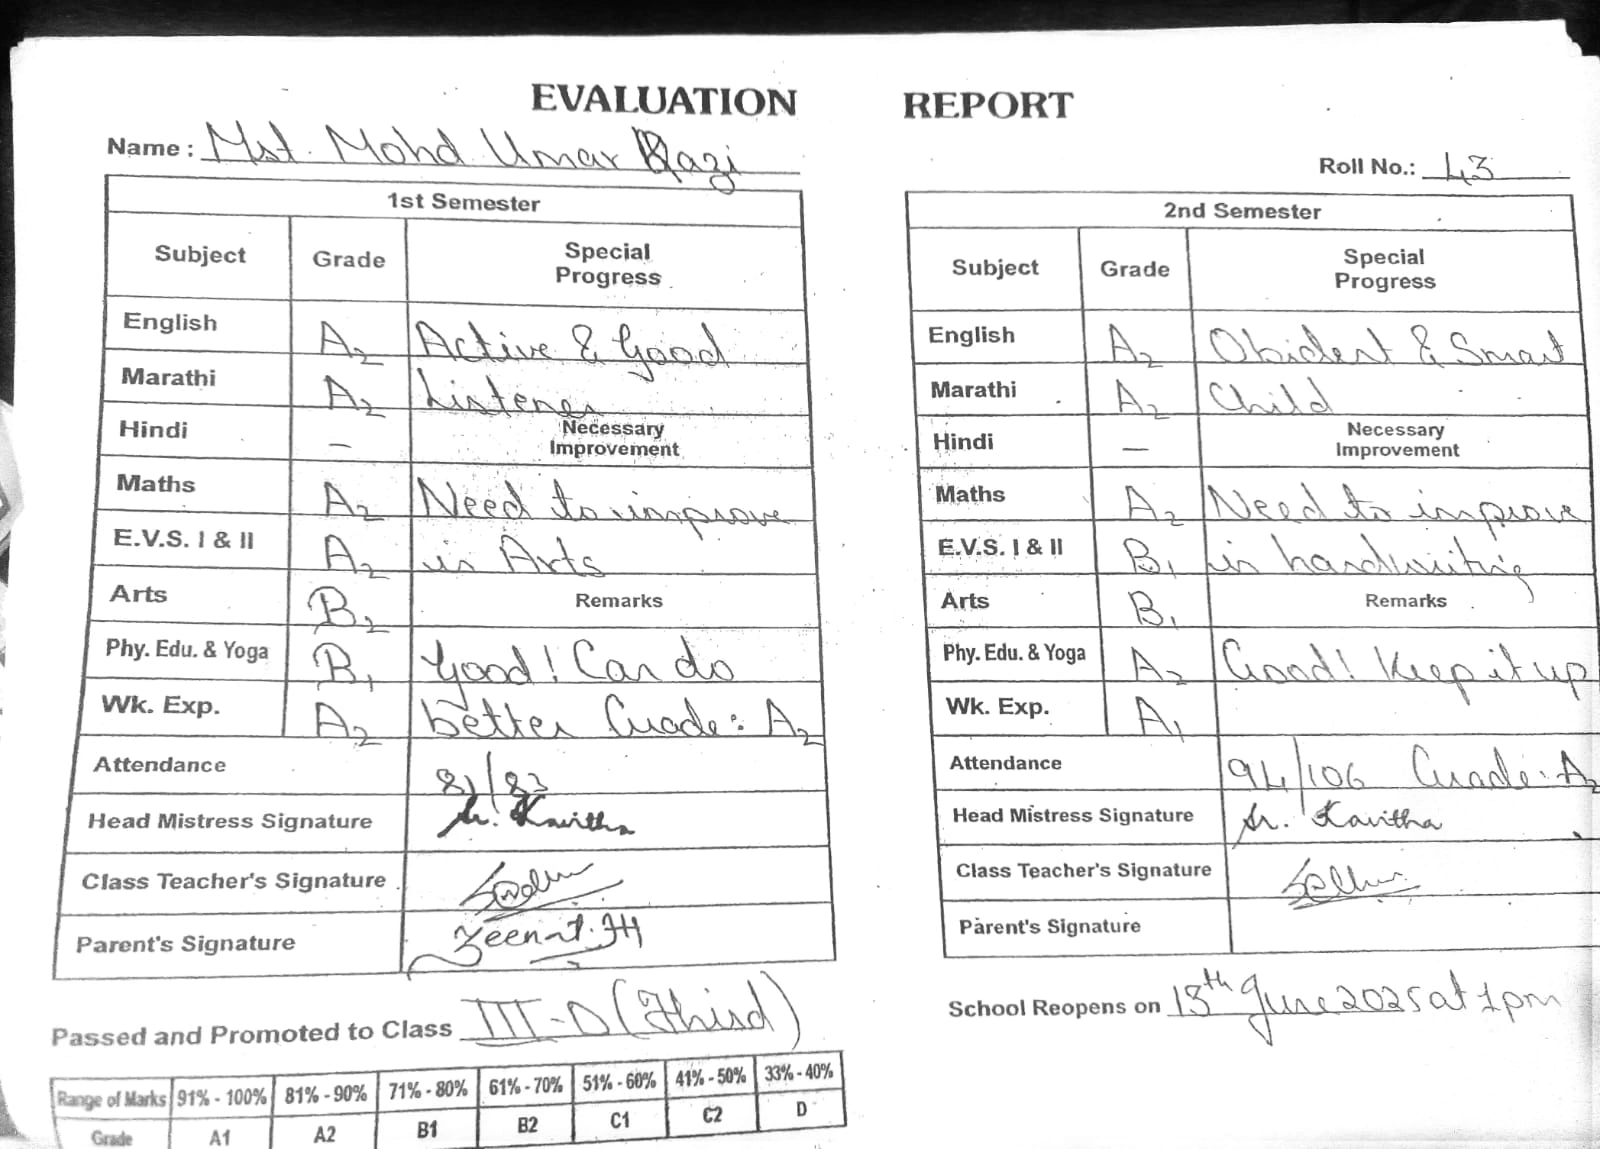 EVALUATION REPORT
Name : Mst. Mohd Umar Qazi
Roll No.: 43
1st Semester
Subject Grade Special Progress
English A2 Active & Good
Marathi A2 Listener
Hindi — Necessary Improvement
Maths A2 Need to improve
E.V.S. I & II A2 in Arts
Arts B2 Remarks
Phy. Edu. & Yoga B1 Good! Can do
Wk. Exp. A2 better Grade: A2
Attendance 81/83
Head Mistress Signature Sr. Kavitha
Class Teacher's Signature
Parent's Signature Zeenat
Passed and Promoted to Class III-D (Third)
Range of Marks 91% - 100% 81% - 90% 71% - 80% 61% - 70% 51% - 60% 41% - 50% 33% - 40%
Grade A1 A2 B1 B2 C1 C2 D
2nd Semester
Subject Grade Special Progress
English A2 Obident & Smart
Marathi A2 Child
Hindi — Necessary Improvement
Maths A2 Need to improve
E.V.S. I & II B1 in handwriting
Arts B1 Remarks
Phy. Edu. & Yoga A2 Good! Keep it up
Wk. Exp. A1
Attendance 94/106 Grade: A2
Head Mistress Signature Sr. Kavitha
Class Teacher's Signature
Parent's Signature
School Reopens on 13th June 2025 at 1pm